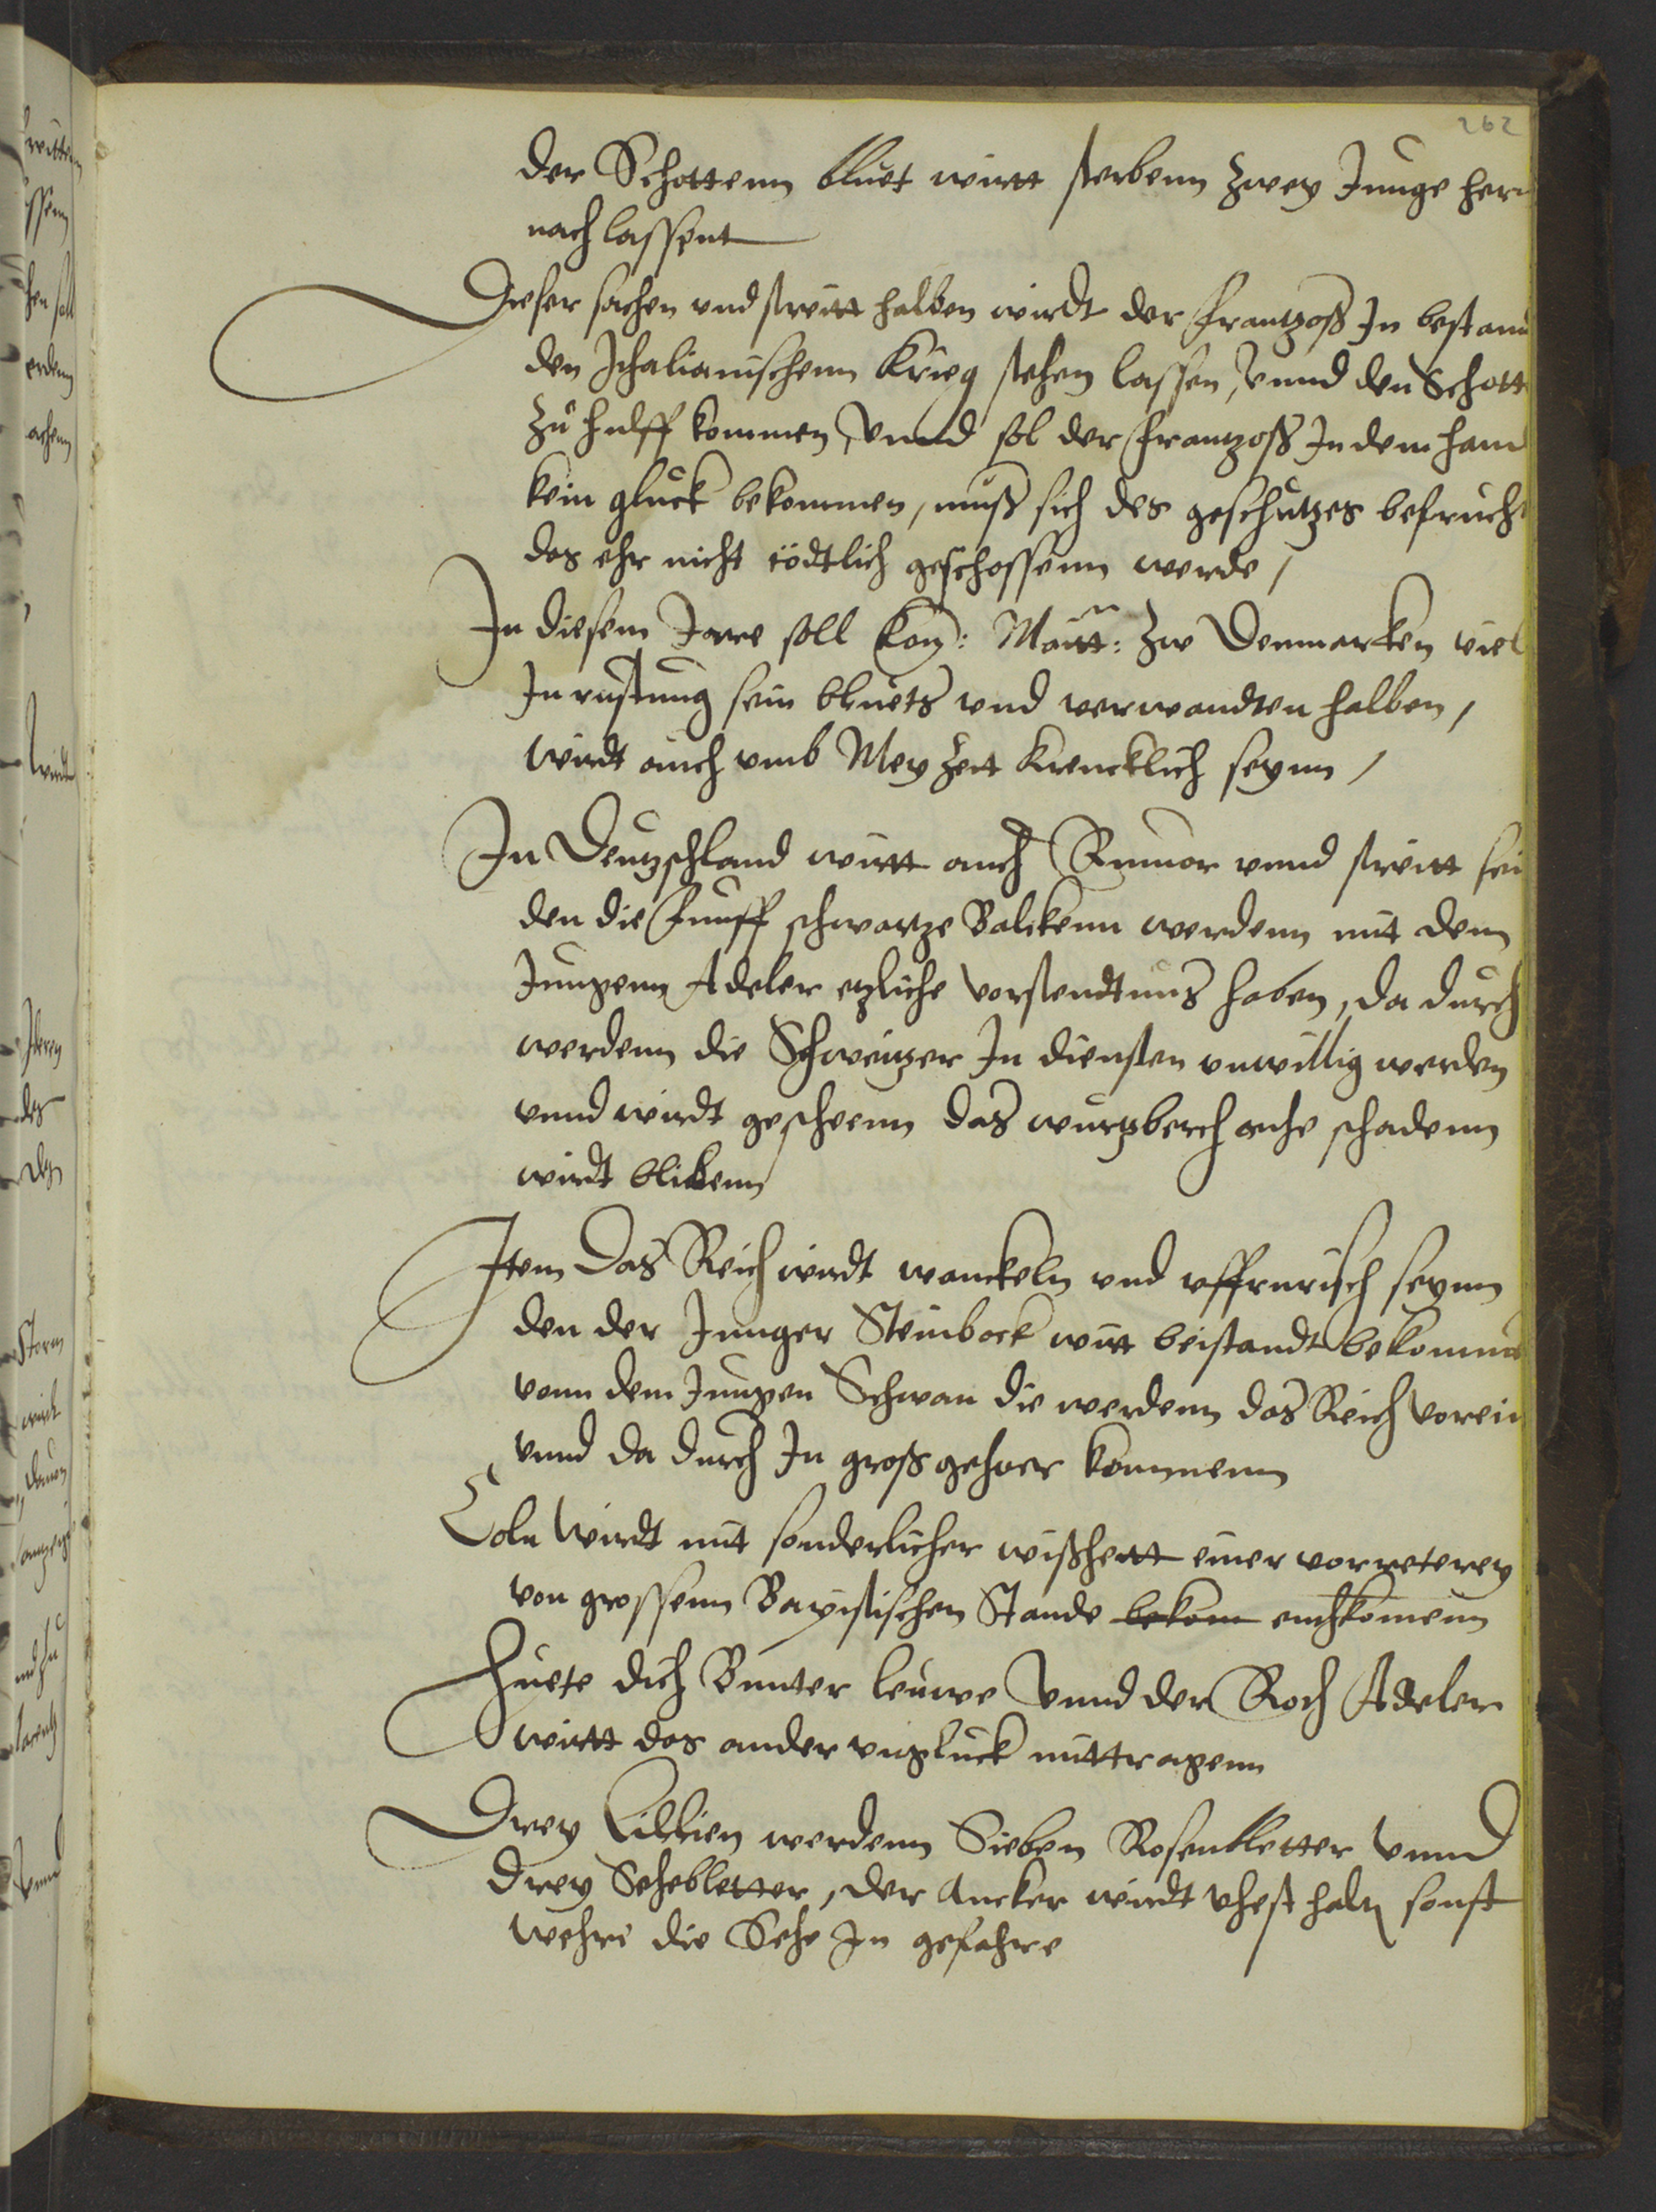 262
der Schottenn bluet wirtt sterbenn zwey Junge hern
nach lassent
Dieser sachen vnd streitt halben wirdt der frantzoß In bestann
den Ithalianischenn Krieg stehen lassen, vnnd den Schott
zu hulff kommen, vnnd sol der frantzoß In dem hand
kein gluck bekommen, muß sich des geschutzes befrucht
das ehr nicht tödtlich geschossenn werde /
In diesem Jare soll Kon: Maitt: zw Denmarken viel
In rustung sein bluets vnd verwandten halben,
wirdt auch vmb Mey zeit krencklich seynn /
In Deutzschland wirtt auch Rumor vnnd streitt sei
den die funff schwartze Balckenn werdenn mit dem
Jungenn Adeler etzliche vorstendtnus haben, da durch
werdenn die Schweitzer In diensten vnwillig werden
vnnd wirdt gescheenn das wurtzberch ane schadenn
wirdt blibenn
Item Das Reich wirdt wanckeln vnd vffrurisch seynn
den der Junger Steinbock wirt beistandt bekomme
vonn dem Jungen Schwan die werdenn das Reich vorein
vnnd da durch In groß gehoer kommenn
Coln wirdt mit sonderlicher wißheitt einer vorreterey
von grossenn Bapistischen Stande bekom enthkomenn
Huete dich Bunter leuwe vnnd der Roth Adeler
wirtt das ander vngluck mittragenn
Drey Lillien werdenn Sieben Rosenbletter vnnd
Drey Sehebletter, der Ancker wirdt vhest haltn sonst
wehre die Sehe In gefahre